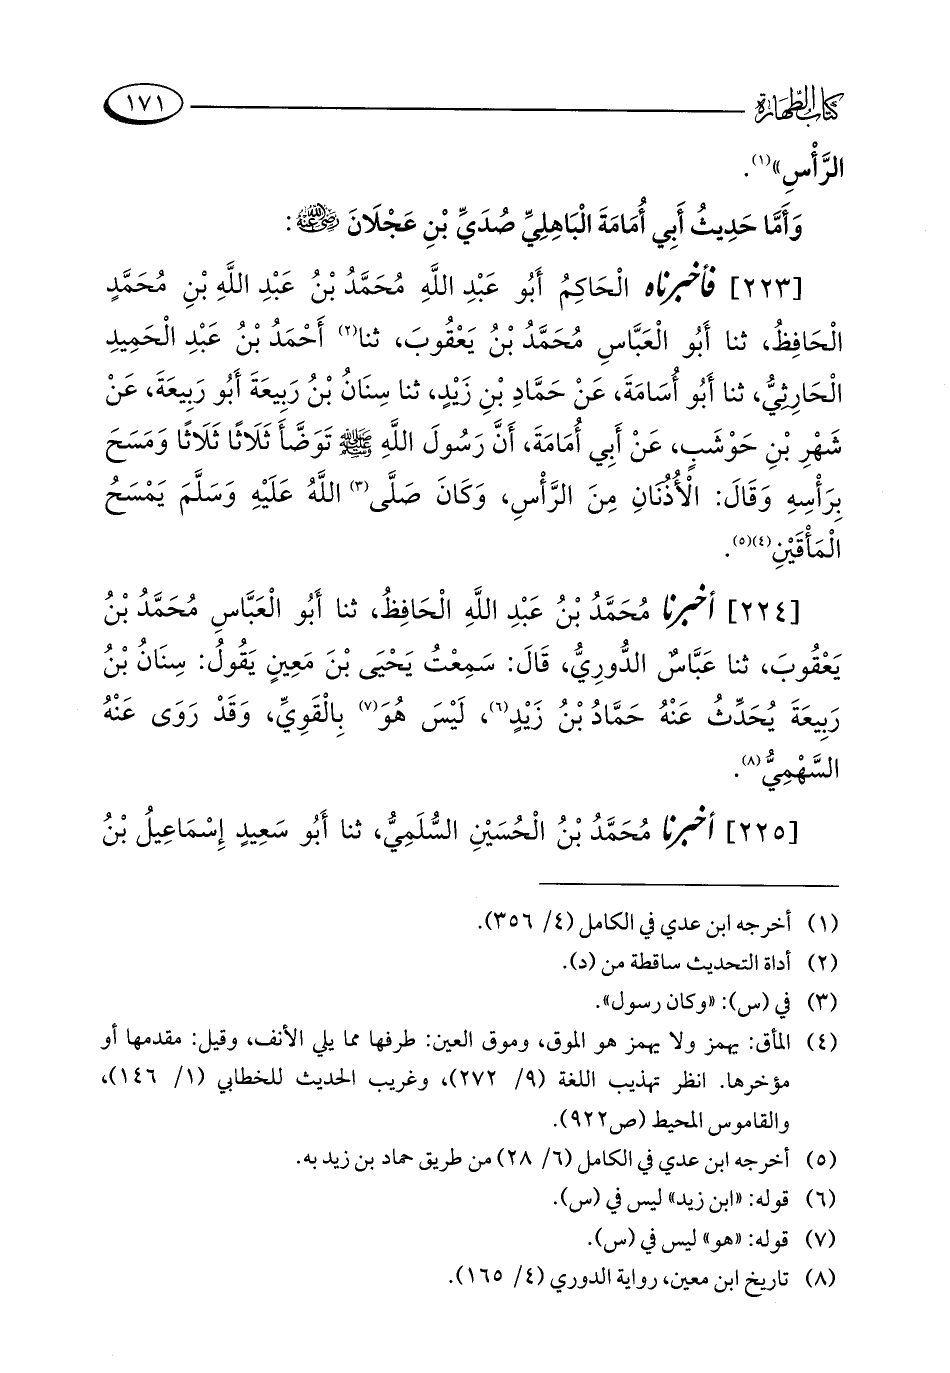 كتاب الطهارة ١٧١
الرَّأْسِ»(١).
وَأَمَّا حَدِيثُ أَبِي أُمَامَةَ الْبَاهِلِيِّ صُدَيِّ بْنِ عَجْلَانَ رضي الله عنه:
[٢٢٣] فأخبرناه الْحَاكِمُ أَبُو عَبْدِ اللَّهِ مُحَمَّدُ بْنُ عَبْدِ اللَّهِ بْنِ مُحَمَّدٍ
الْحَافِظُ، ثنا أَبُو الْعَبَّاسِ مُحَمَّدُ بْنُ يَعْقُوبَ، ثنا(٢) أَحْمَدُ بْنُ عَبْدِ الْحَمِيدِ
الْحَارِثِيُّ، ثنا أَبُو أُسَامَةَ، عَنْ حَمَّادِ بْنِ زَيْدٍ، ثنا سِنَانُ بْنُ رَبِيعَةَ أَبُو رَبِيعَةَ، عَنْ
شَهْرِ بْنِ حَوْشَبٍ، عَنْ أَبِي أُمَامَةَ، أَنَّ رَسُولَ اللَّهِ ﷺ تَوَضَّأَ ثَلَاثًا ثَلَاثًا وَمَسَحَ
بِرَأْسِهِ وَقَالَ: الْأُذُنَانِ مِنَ الرَّأْسِ، وَكَانَ صَلَّى(٣) اللَّهُ عَلَيْهِ وَسَلَّمَ يَمْسَحُ
الْمَأْقَيْنِ(٤)(٥).
[٢٢٤] أخبرنا مُحَمَّدُ بْنُ عَبْدِ اللَّهِ الْحَافِظُ، ثنا أَبُو الْعَبَّاسِ مُحَمَّدُ بْنُ
يَعْقُوبَ، ثنا عَبَّاسٌ الدُّورِيُّ، قَالَ: سَمِعْتُ يَحْيَى بْنَ مَعِينٍ يَقُولُ: سِنَانُ بْنُ
رَبِيعَةَ يُحَدِّثُ عَنْهُ حَمَّادُ بْنُ زَيْدٍ(٦)، لَيْسَ هُوَ(٧) بِالْقَوِيِّ، وَقَدْ رَوَى عَنْهُ
السَّهْمِيُّ(٨).
[٢٢٥] أخبرنا مُحَمَّدُ بْنُ الْحُسَيْنِ السُّلَمِيُّ، ثنا أَبُو سَعِيدٍ إِسْمَاعِيلُ بْنُ
(١) أخرجه ابن عدي في الكامل (٤/ ٣٥٦).
(٢) أداة التحديث ساقطة من (د).
(٣) في (س): «وكان رسول».
(٤) المأق: يهمز ولا يهمز هو الموق، وموق العين: طرفها مما يلي الأنف، وقيل: مقدمها أو
مؤخرها. انظر تهذيب اللغة (٩/ ٢٧٢)، وغريب الحديث للخطابي (١/ ١٤٦)،
والقاموس المحيط (ص٩٢٢).
(٥) أخرجه ابن عدي في الكامل (٦/ ٢٨) من طريق حماد بن زيد به.
(٦) قوله: «ابن زيد» ليس في (س).
(٧) قوله: «هو» ليس في (س).
(٨) تاريخ ابن معين، رواية الدوري (٤/ ١٦٥).